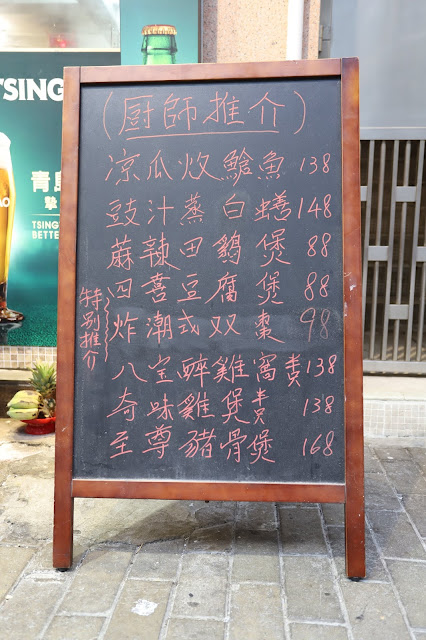 (厨師推介)
凉瓜炆鯰魚 138
豉汁蒸白蟮 148
蔴辣田鷄煲 88
四喜豆腐煲 88
炸潮式双棗 98
八宝醉雞窩 隻 138
奇味雞煲 半只 138
至尊豬骨煲 168
特别推介
TSING
青島
摯
TSING
BETTE